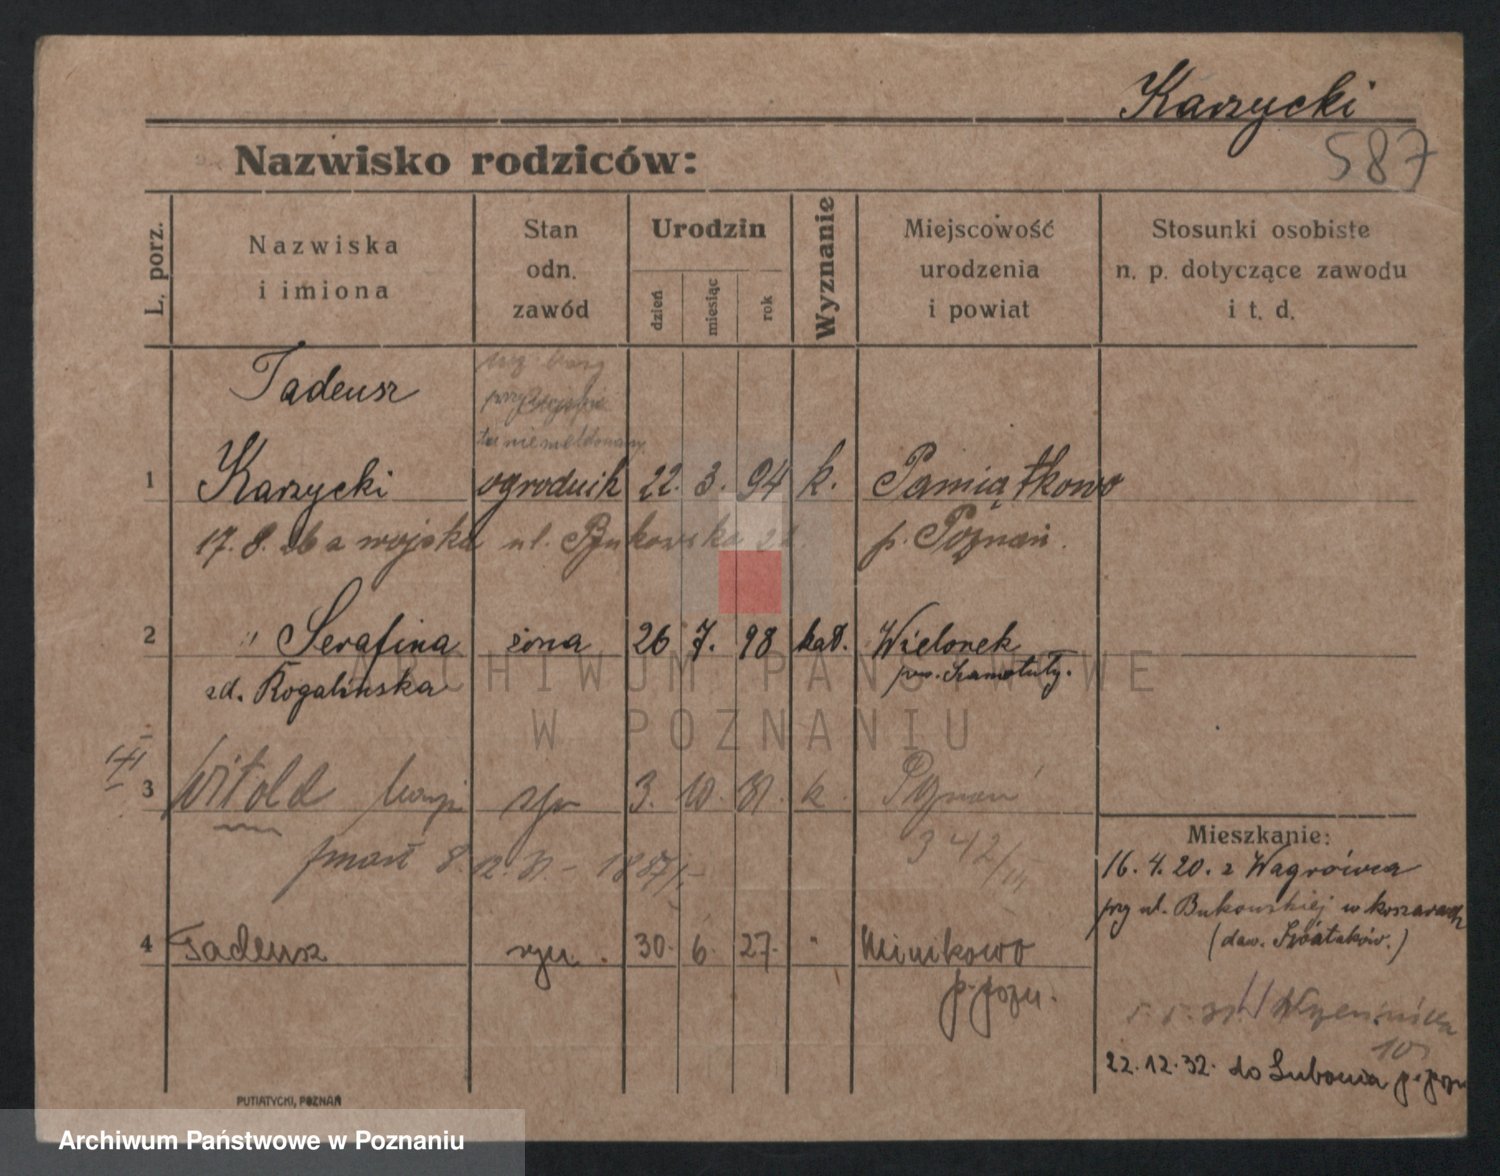 Karzycki
587
Nazwisko rodziców:
L. porz.
Nazwiska
i imiona
Stan
odn.
zawód
Urodzin
dzień
miesiąc
rok
Wyznanie
Miejscowość
urodzenia
i powiat
Stosunki osobiste
n. p. dotyczące zawodu
i t. d.
Tadeusz
tu nie meldowany
1 Karzycki ogrodnik 22. 3. 94 k. Pamiątkowo
17. 8. 26 a wojska ul. Bukowska p. Poznań.
2 " Serafina żona 26 7. 98 kat. Wielonek
zd. Rogalińska pow. Szamotuły.
3 Witold syn 3. 10. 31. k. Poznań
zmarł 8. 12. 31. – 1887/
342/
Mieszkanie:
16. 4. 20. z Wągrówca
przy ul. Bukowskiej w koszarach
4 Tadeusz syn. 30. 6. 27. " Minikowo
p. pozn.
10
22. 12. 32. do Lubonia p. pozn
PUTIATYCKI, POZNAŃ
ARCHIWUM PAŃSTWOWE
W POZNANIU
Archiwum Państwowe w Poznaniu